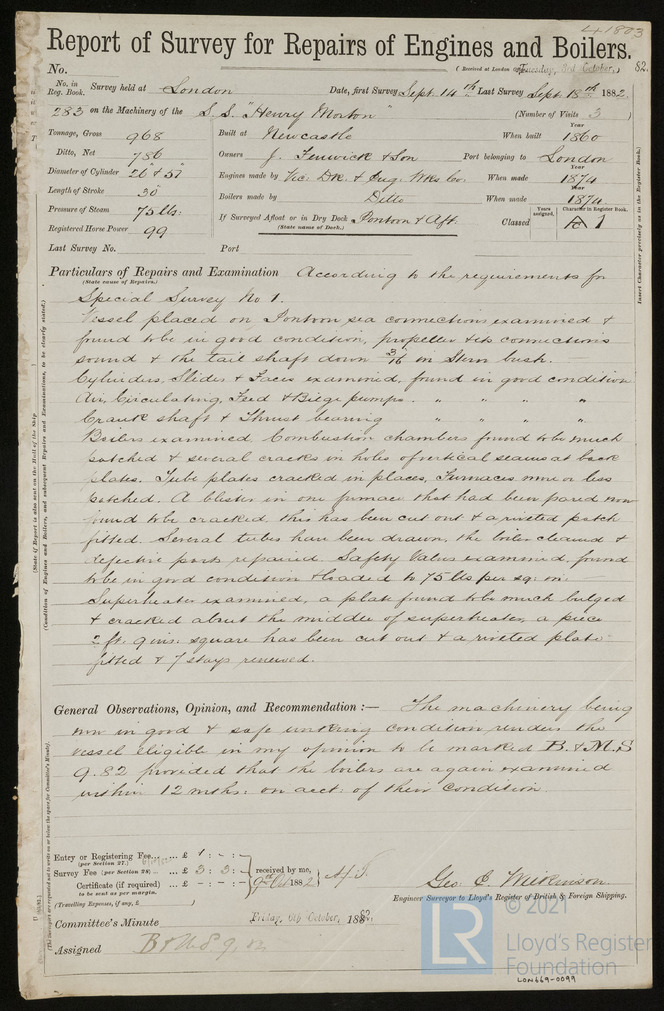 41803
Report of Survey for Repairs of Engines and Boilers.
No. (Received at London Office Tuesday, 3rd October, 82.
No. in Reg. Book. Survey held at London Date, first Survey Sept. 14th Last Survey Sept. 18th 1882.
283 on the Machinery of the S.S. "Henry Morton" (Number of Visits 3 )
Tonnage, Gross 968 Built at Newcastle When built Year 1860
Ditto, Net 786 Owners J. Fenwick & Son Port belonging to London
Diameter of Cylinder 26 & 51 Engines made by Vic. Dk. & Eng. Wks Co. When made Year 1874
Length of Stroke 30 Boilers made by Ditto When made Year 1874
Pressure of Steam 75 lbs. If Surveyed Afloat or in Dry Dock Pontoon & Aft. Classed Years assigned. Character in Register Book. A 1
(State name of Dock.)
Registered Horse Power 99
Last Survey No. Port
Particulars of Repairs and Examination According to the requirements for
(State name of Repairs.)
Special Survey No 1.
Vessel placed on Pontoon sea connections examined &
found to be in good condition, propeller & its connections
sound & the tail shaft down 3/16 in Stern bush.
Cylinders, Slides & Faces examined, found in good condition
Air, Circulating, Feed & Bilge pumps. " " " "
Crank shaft & Thrust bearing " " " "
Boilers examined Combustion chambers found to be much
patched & several cracks in holes of vertical seams at back
plates. Tube plates cracked in places, Furnaces more or less
patched. A blister in one furnace that had been pared now
found to be cracked, this has been cut out & a riveted patch
fitted. Several tubes have been drawn, the boiler cleaned &
defective parts repaired. Safety Valves examined, found
to be in good condition & loaded to 75 lbs per sq: in.
Superheater examined, a plate found to be much bulged
& cracked about the middle of superheater, a piece
2 ft. 9 ins. square has been cut out & a riveted plate
fitted & 7 stays renewed.
General Observations, Opinion, and Recommendation :— The machinery being
now in good & safe working condition renders the
vessel eligible in my opinion to be marked B. & M.S
9.82 provided that the boilers are again examined
within 12 mths: on acct: of their condition.
Entry or Registering Fee... ... £ 1 : - : -
(per Section 27.)
Survey Fee (per Section 28) ... £ 3 : 3 : - received by me,
Certificate (if required) ... £ - : - : - 9th Oct 1882
to be sent as per margin.
(Travelling Expenses, if any, £ )
Geo. C. Wilkinson
Engineer Surveyor to Lloyd's Register of British & Foreign Shipping.
Committee's Minute Friday, 6th October, 1882.
Assigned B & MS 9.82
(State if Report is also sent on the Hull of the Ship
(Condition of Engines and Boilers, and subsequent Repairs and Examinations, to be clearly stated.)
Insert Character precisely as in the Register Book.)
© 2021
LR
Lloyd's Register
Foundation
LON669-0099